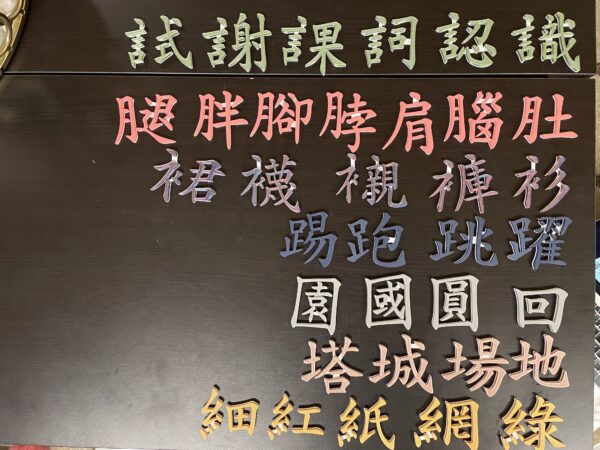 試謝課詞認識
腿胖腳脖肩腦肚
裙襪襯褲衫
踢跑跳躍
園國圓回
塔城場地
細紅紙網綠